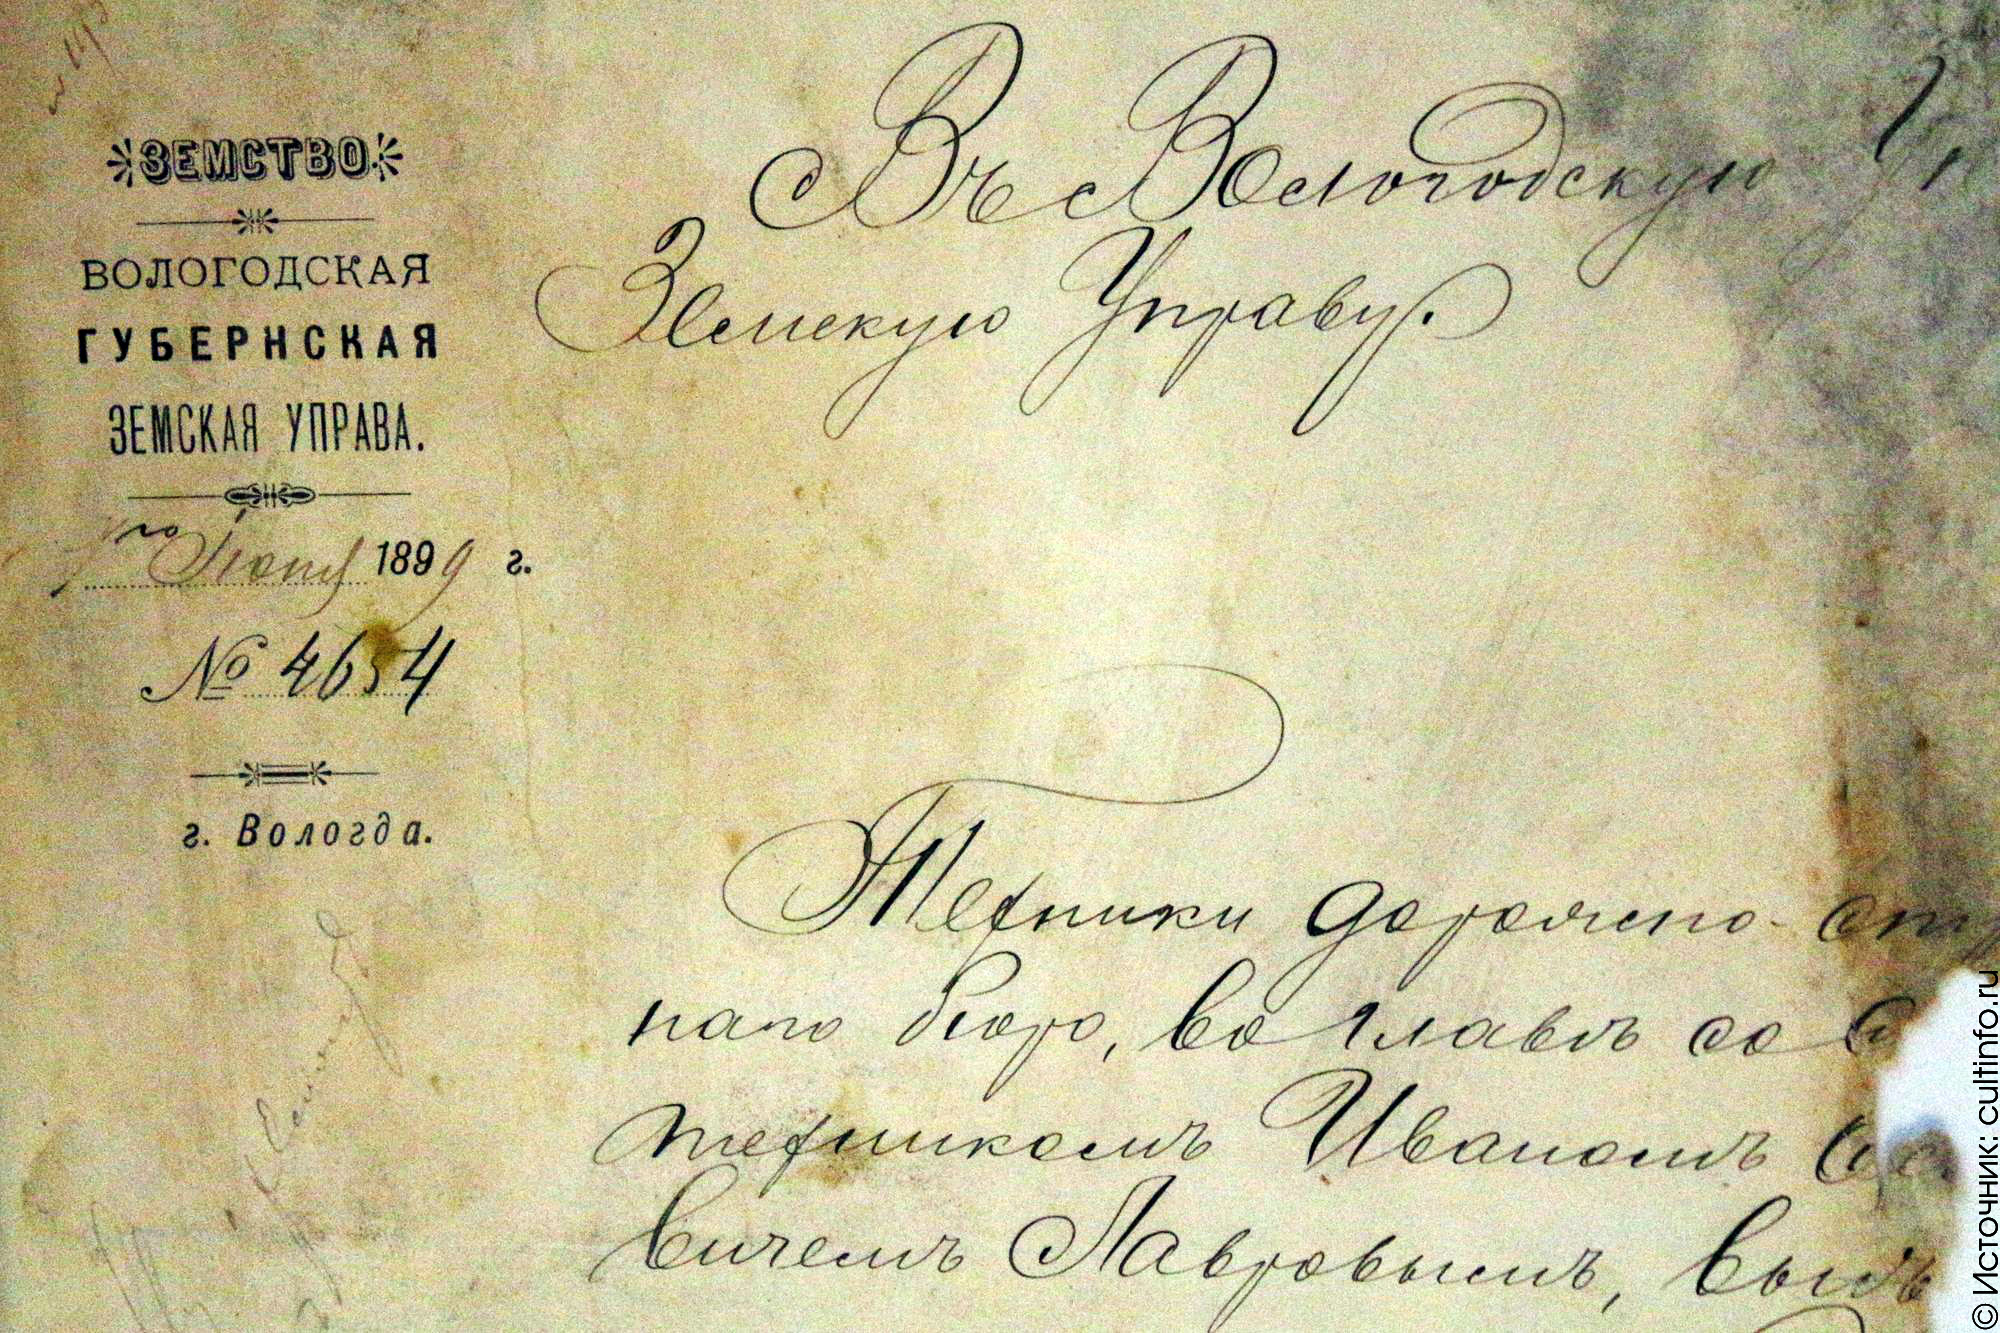 ЗЕМСТВО
ВОЛОГОДСКАЯ
ГУБЕРНСКАЯ
ЗЕМСКАЯ УПРАВА.
го Июня 1899 г.
№ 4654
г. Вологда.
Въ Вологодскую
Земскую Управу.
Техники дорожно-
наго бюро, во главѣ со
техникомъ Иваномъ
вичемъ Лавровымъ,
© Источник: cultinfo.ru